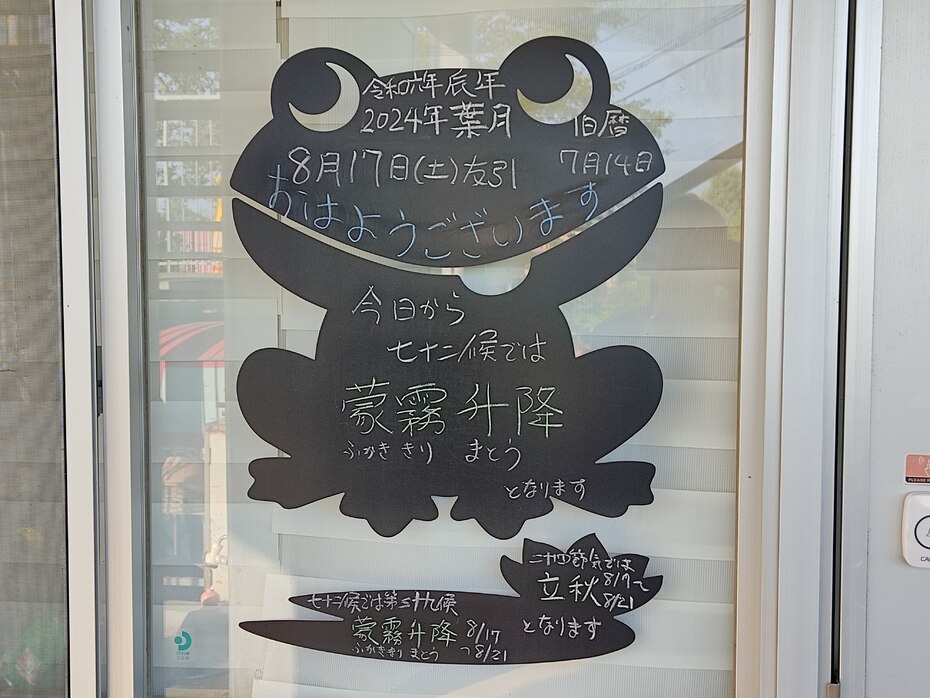 令和六年辰年
2024年葉月
旧暦
8月17日(土)友引
7月14日
おはようございます
今日から
七十二候では
蒙霧升降
ふかききり まとう
となります
二十四節気では
立秋 8/7〜
8/21
となります
七十二候では第三十九候
蒙霧升降 8/17
ふかききり まとう 〜8/21